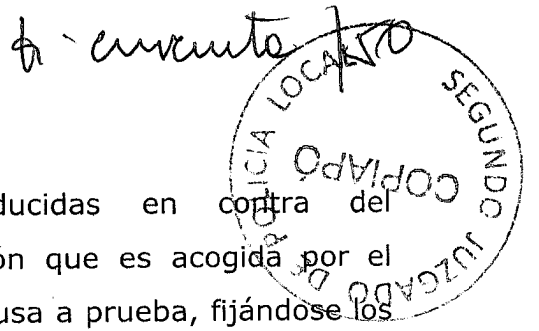 cincuenta / 50
SEGUNDO JUZGADO DE POLICIA LOCAL
COPIAPÓ
ducidas en contra del
ón que es acogida por el
usa a prueba, fijándose los